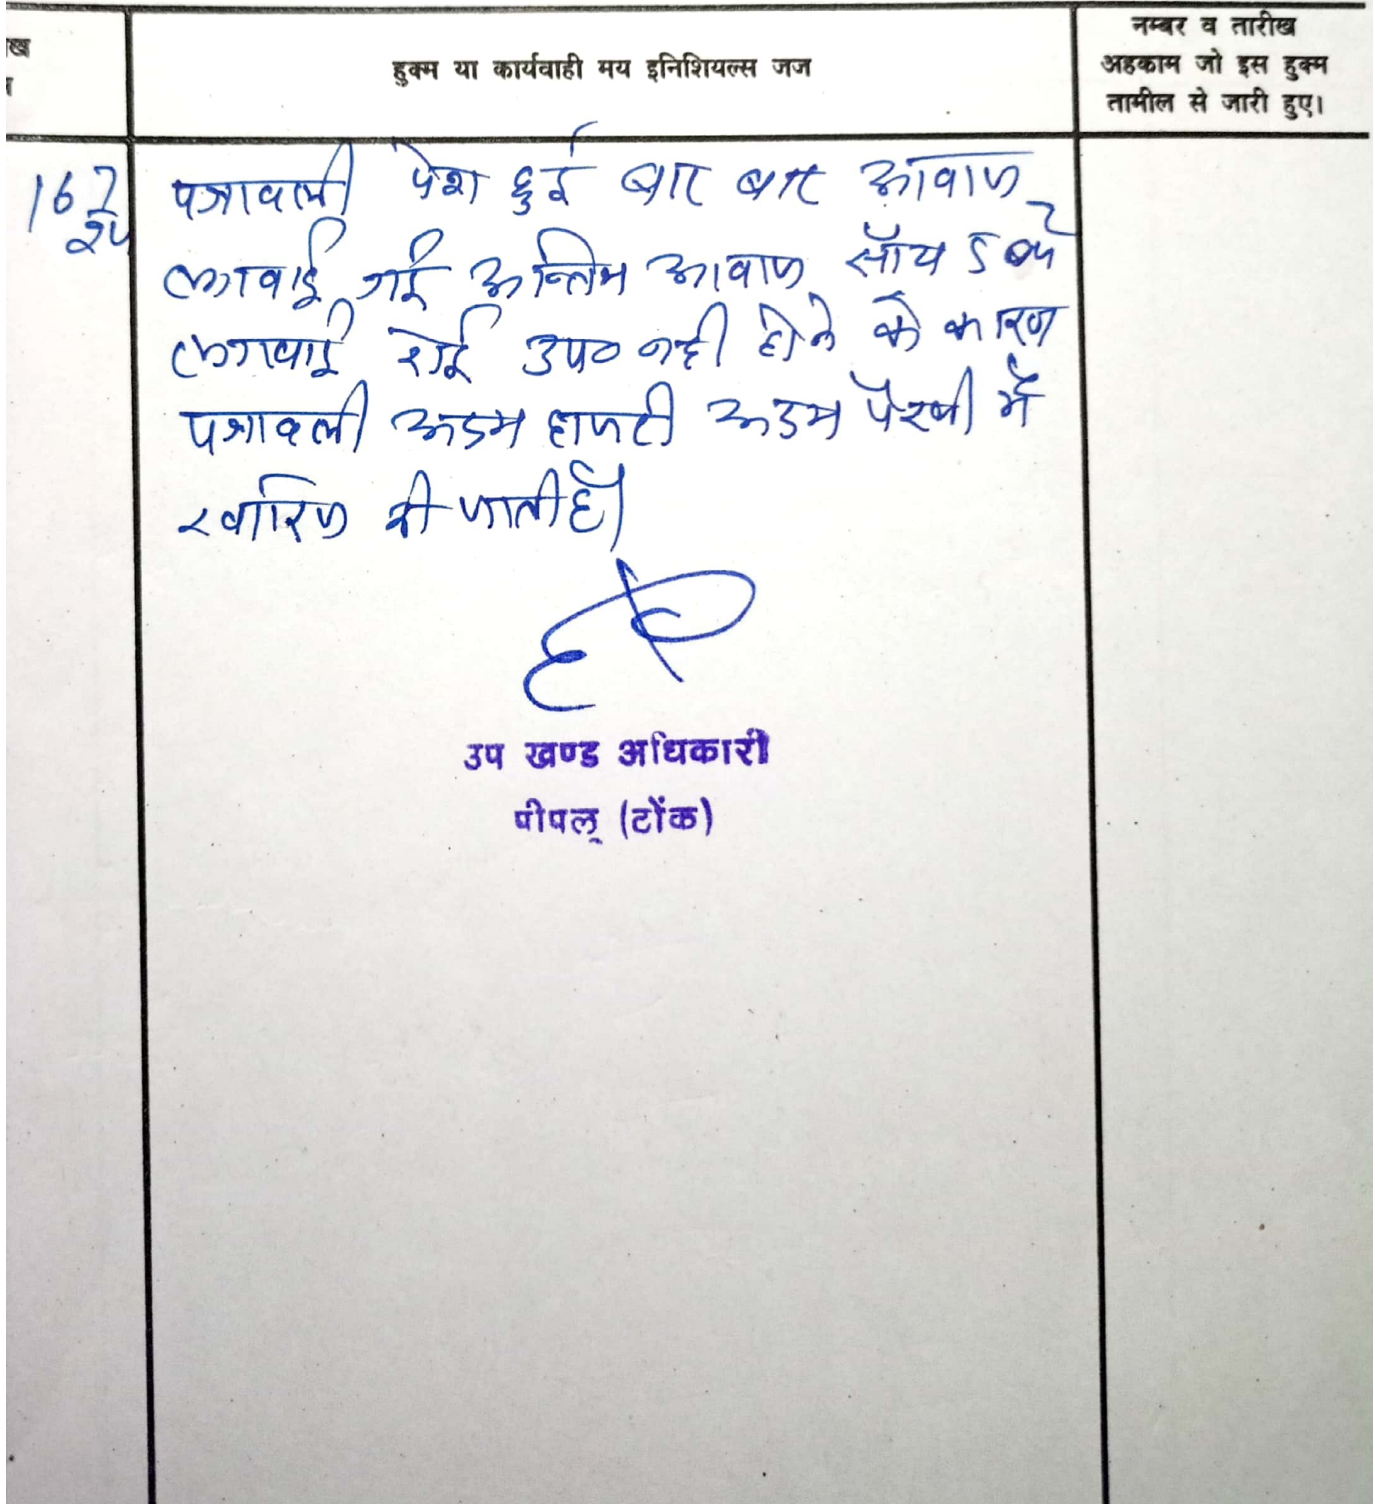 ख
हुक्म या कार्यवाही मय इनिशियल्स जज
नम्बर व तारीख
अहकाम जो इस हुक्म
तामील से जारी हुए।
16 7
पत्रावली पेश हुई बार बार आवाज
लगवाई गई अन्तिम आवाज सॉय 5 बजे
लगवाई गई उप० नही होने के कारण
पत्रावली अदम हाजरी अदम पैरवी में
खारिज की जाती है।
उप खण्ड अधिकारी
पीपलू (टोंक)